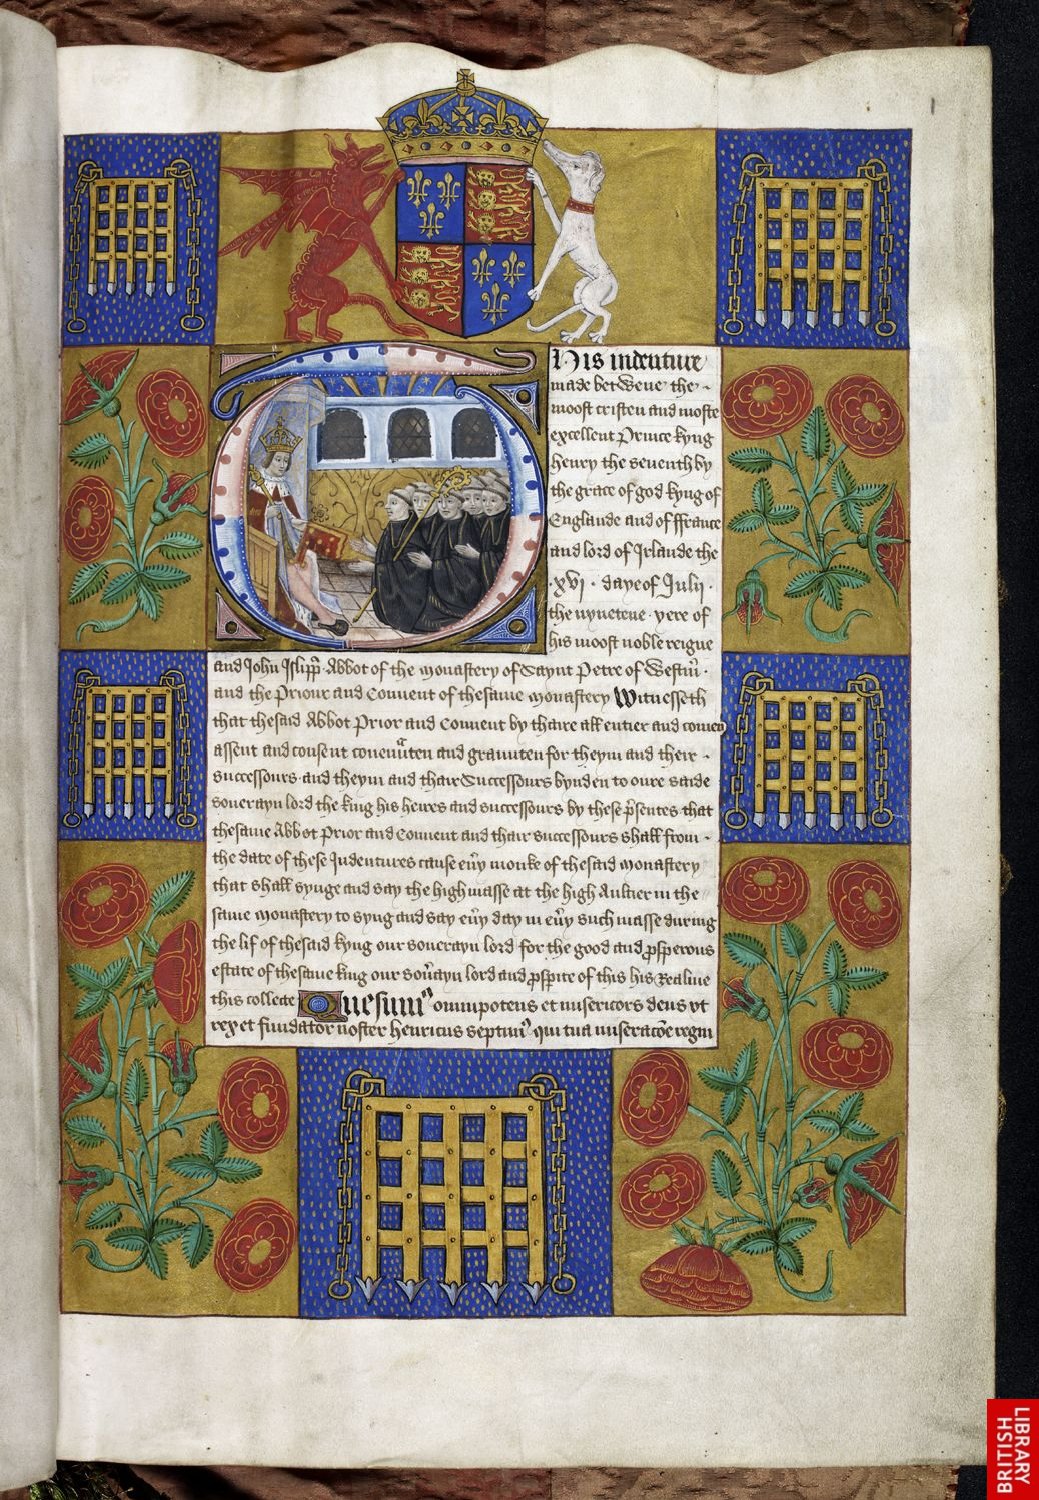 This indenture
made betwene the
moost cristen and moste
excellent Prince kyng
henry the seventh by
the grace of god kyng of
Englande and of ffraunce
and lord of Irlande the
xvi day of Iulii
the nynetene yere of
his moost noble reigne
and John Islipp Abbot of the monastery of Saynt Petre of Westm
and the Priour and Convent of thesame monastery Witnesseth
that thesaid Abbot Prior and Convent by thaire all entier and comen
assent and consent
successours and theym and thair Successours bynden to oure saide
soverayn lord the king his heires and successours by these psentes that
thesame Abbot Prior and Convent and thair successours shall from
the date of these Indentures cause evy monke of thesaid monastery
that shall synge and say the high masse at the high Aulter in the
same monastery to syng and say evy day in evy such masse during
the lif of thesaid kyng our soverayn lord for the good and psperous
estate of thesame king our sovayn lord and pspite of this his Realme
this collecte Quesum omnipotens et misericors deus ut
rex et fundator noster henricus septim qui tua miseracoe regni
BRITISH
LIBRARY